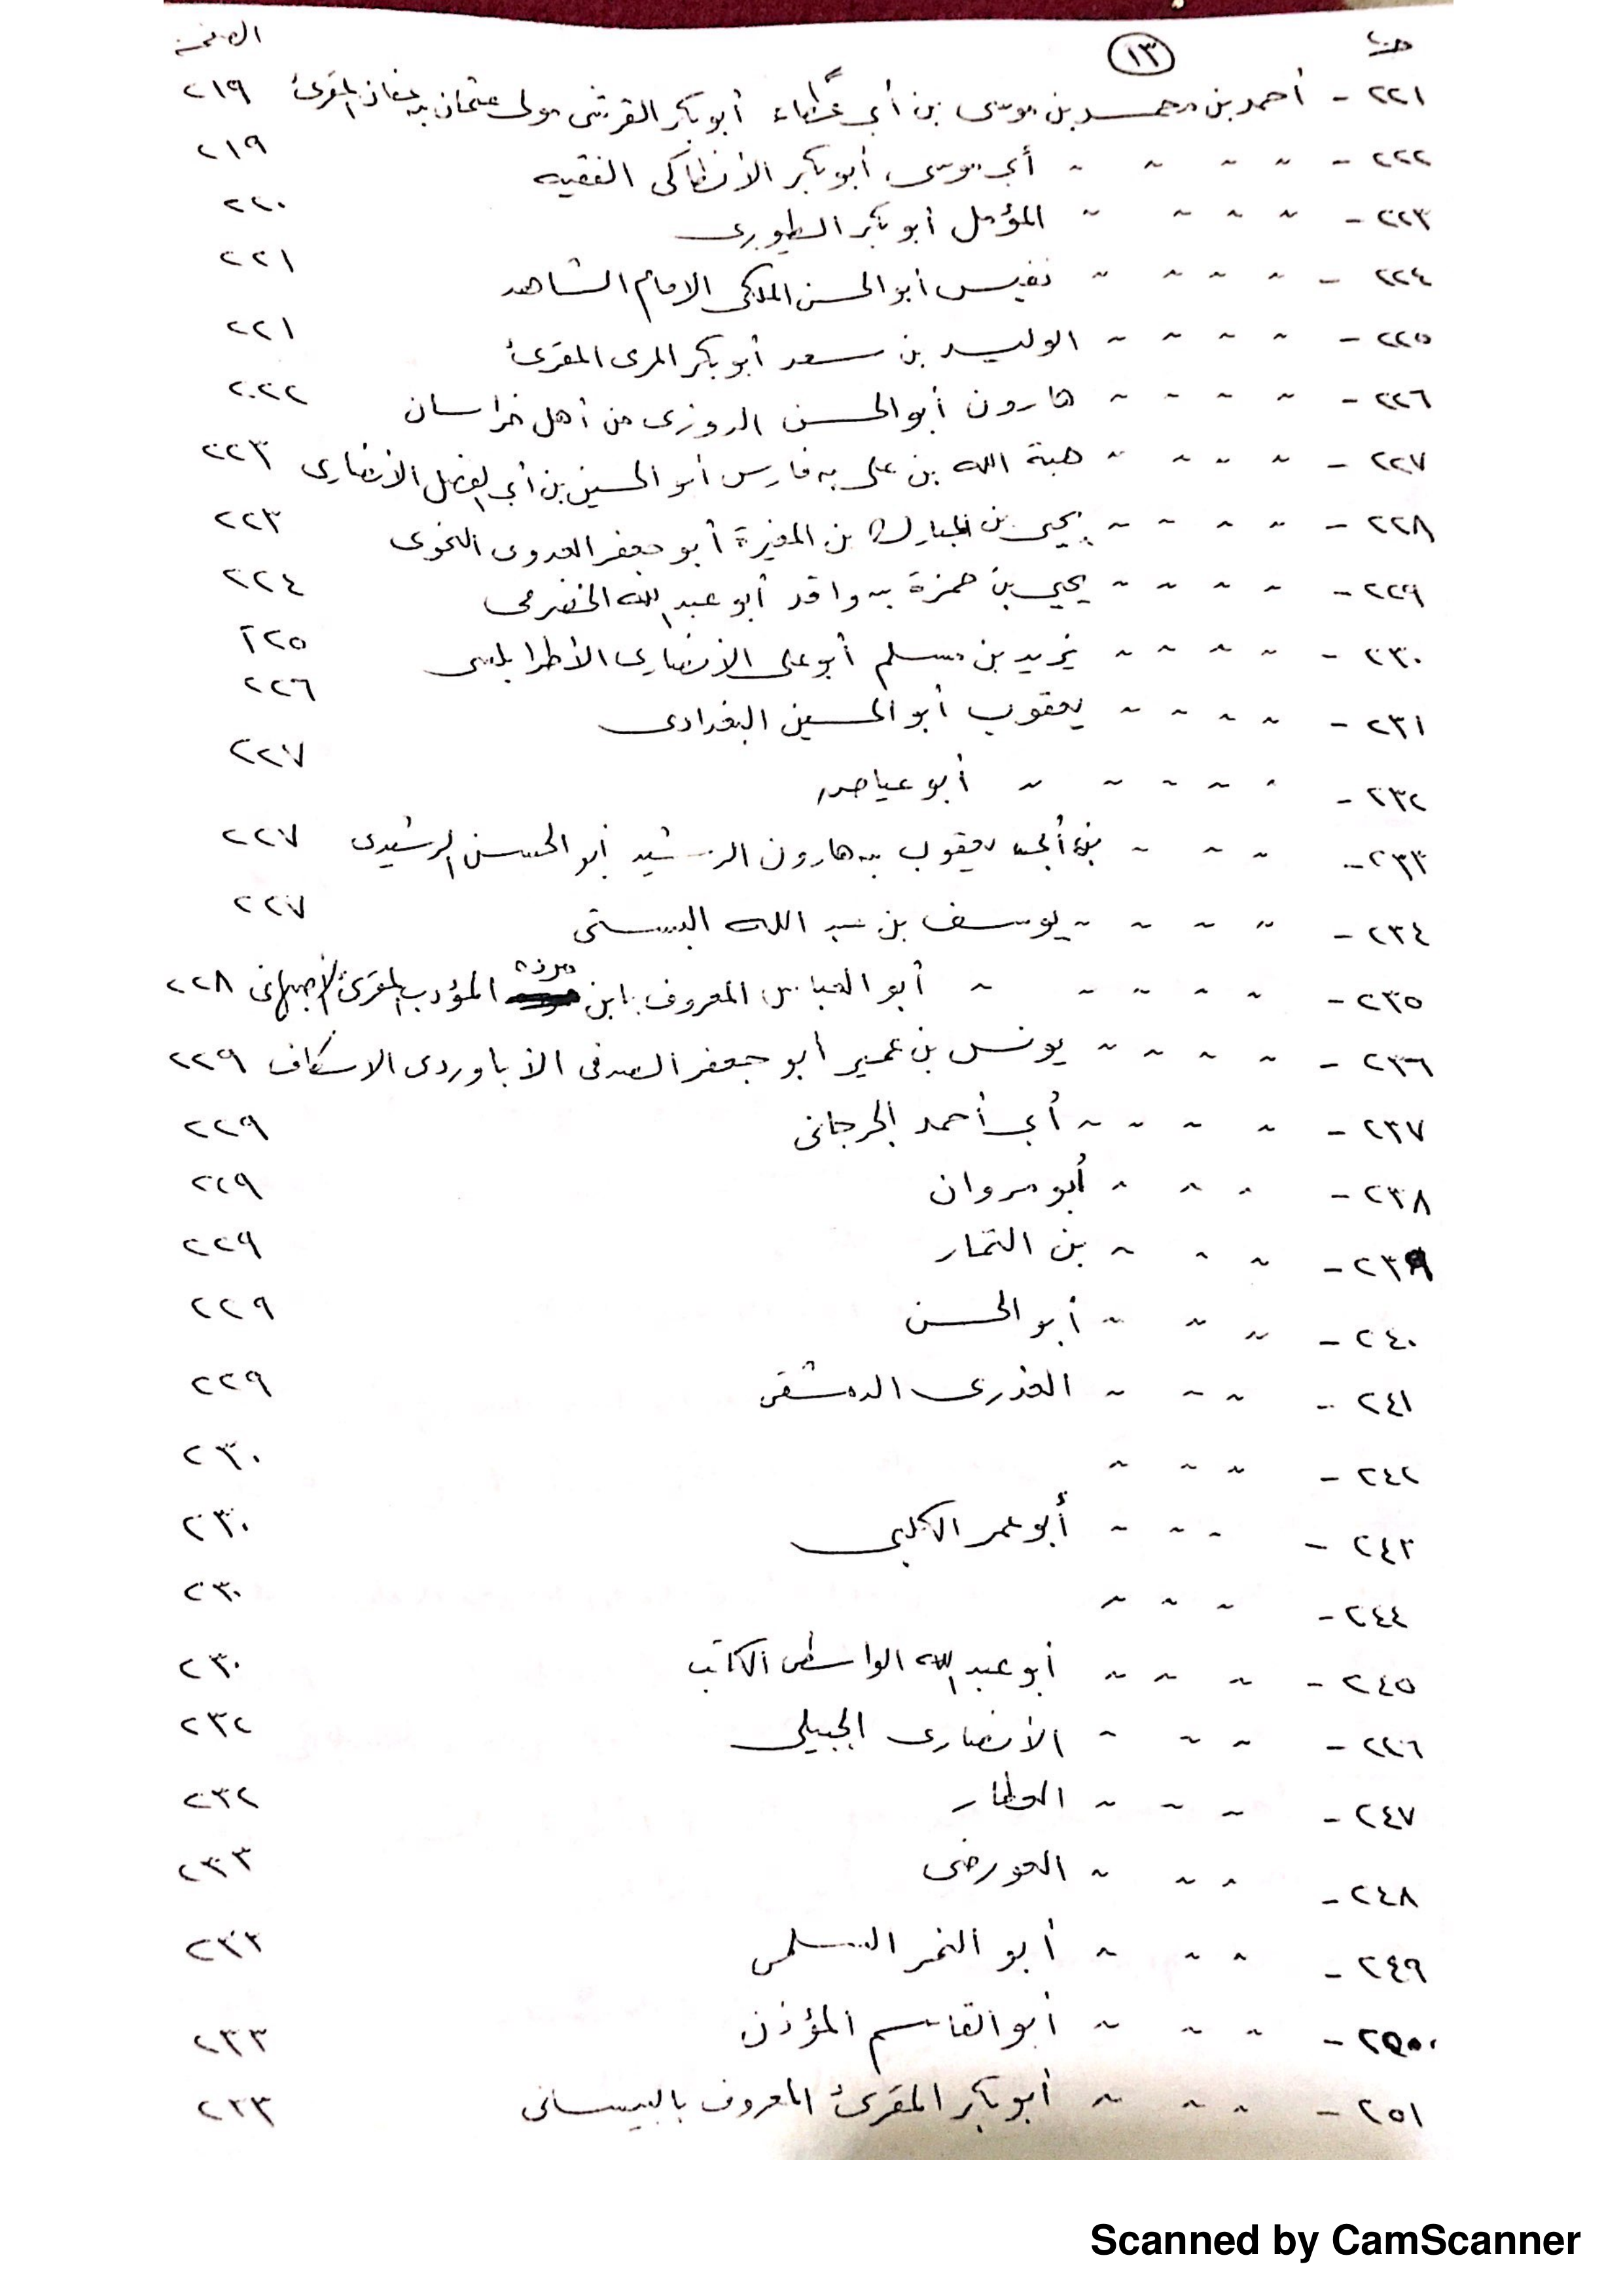 الصفحة
١٣
٢٢١ - أحمد بن محمد بن موسى بن أبي عطاء أبو بكر القرشى مولى عثمان بن عفان المقرئ ٢١٩
٢٢٢ - " " " " أبي موسى أبو بكر الأنطاكى الفقيه ٢١٩
٢٢٣ - " " " " المؤمل أبو بكر الصورى ٢٢٠
٢٢٤ - " " " " نفيس أبو الحسن الملكى الامام الشاهد ٢٢١
٢٢٥ - " " " " الوليد بن سعد أبو بكر المرى المقرئ ٢٢١
٢٢٦ - " " " " هارون أبو الحسن الروزى من أهل خراسان ٢٢٢
٢٢٧ - " " " " هبة الله بن على به فارس أبو الحسين بن أبي الفضل الأنصارى ٢٢٣
٢٢٨ - " " " " يحيى بن المبارك بن المغيرة أبو جعفر العدوى النحوى ٢٢٣
٢٢٩ - " " " " يحيى بن حمزة به واقد أبو عبد الله الحضرمى ٢٢٤
٢٣٠ - " " " " يزيد بن مسلم أبو على الأنصارى الأطرابلسى ٢٢٥
٢٣١ - " " " " يعقوب أبو الحسين البغدادى ٢٢٦
٢٣٢ - " " " " " أبو عياصر ٢٢٧
٢٣٣ - " " " يعقوب به هارون الرشيد أبو الحسن الرشيدى ٢٢٧
٢٣٤ - " " " " يوسف بن عبد الله البستى ٢٢٧
٢٣٥ - " " " " " أبو العباس المعروف بابن مردة المؤدب المقرئ الأصبهانى ٢٢٨
٢٣٦ - " " " " يونس بن عمير أبو جعفر الصدفى الأباوردى الاسكاف ٢٢٩
٢٣٧ - " " " " أبي أحمد الجرجانى ٢٢٩
٢٣٨ - " " " أبو مروان ٢٢٩
٢٣٩ - " " " بن التمار ٢٢٩
٢٤٠ - " " " أبو الحسن ٢٢٩
٢٤١ - " " " العذرى الدمشقى ٢٢٩
٢٤٢ - " " " ٢٣٠
٢٤٣ - " " " أبو عمر الكلبى ٢٣٠
٢٤٤ - " " " ٢٣٠
٢٤٥ - " " " " أبو عبد الله الواسطى الكاتب ٢٣٠
٢٤٦ - " " " الأنصارى الجبيلى ٢٣٢
٢٤٧ - " " " العطار ٢٣٢
٢٤٨ - " " " العورضى ٢٣٣
٢٤٩ - " " " أبو النمر السلمى ٢٣٣
٢٥٠ - " " " أبو القاسم المؤذن ٢٣٣
٢٥١ - " " " أبو بكر المقرئ المعروف بالبيسانى ٢٣٣
Scanned by CamScanner